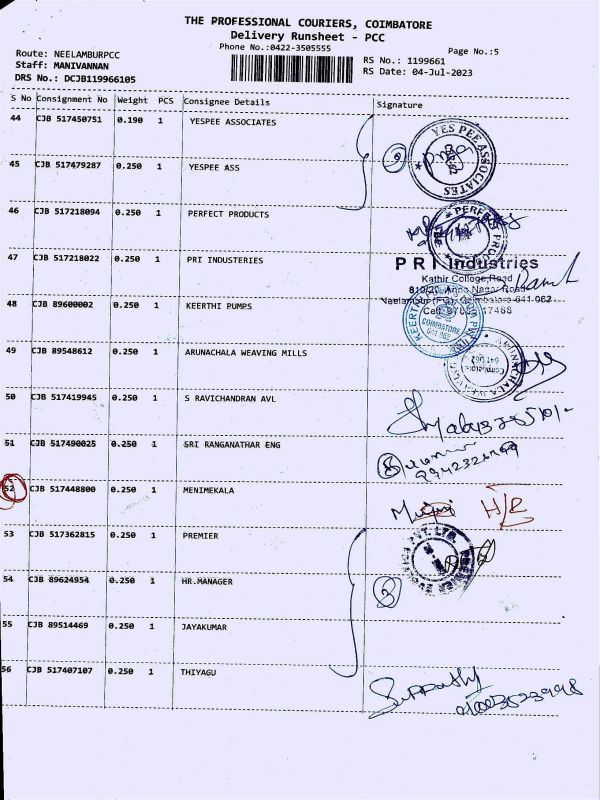 THE PROFESSIONAL COURIERS, COIMBATORE
Delivery Runsheet - PCC
Phone No.:0422-3505555
Page No.:5
Route: NEELAMBURPCC
Staff: MANIVANNAN
DRS No.: DCJB119966105
RS No.: 1199661
RS Date: 04-Jul-2023
S No Consignment No Weight PCS Consignee Details Signature
44 CJB 517450751 0.190 1 YESPEE ASSOCIATES
YES PEE ASSOCIATES
45 CJB 517479287 0.250 1 YESPEE ASS
46 CJB 517218094 0.250 1 PERFECT PRODUCTS
47 CJB 517218022 0.250 1 PRI INDUSTERIES
PRI Industries
Kathir College Road
Neelambur Coimbatore 641 062
48 CJB 89600002 0.250 1 KEERTHI PUMPS
COIMBATORE
49 CJB 89548612 0.250 1 ARUNACHALA WEAVING MILLS
50 CJB 517419945 0.250 1 S RAVICHANDRAN AVL
51 CJB 517490025 0.250 1 SRI RANGANATHAR ENG
52 CJB 517448800 0.250 1 MENIMEKALA
53 CJB 517362815 0.250 1 PREMIER
PVT. LTD.
54 CJB 89624954 0.250 1 HR.MANAGER
3
55 CJB 89514469 0.250 1 JAYAKUMAR
56 CJB 517407107 0.250 1 THIYAGU